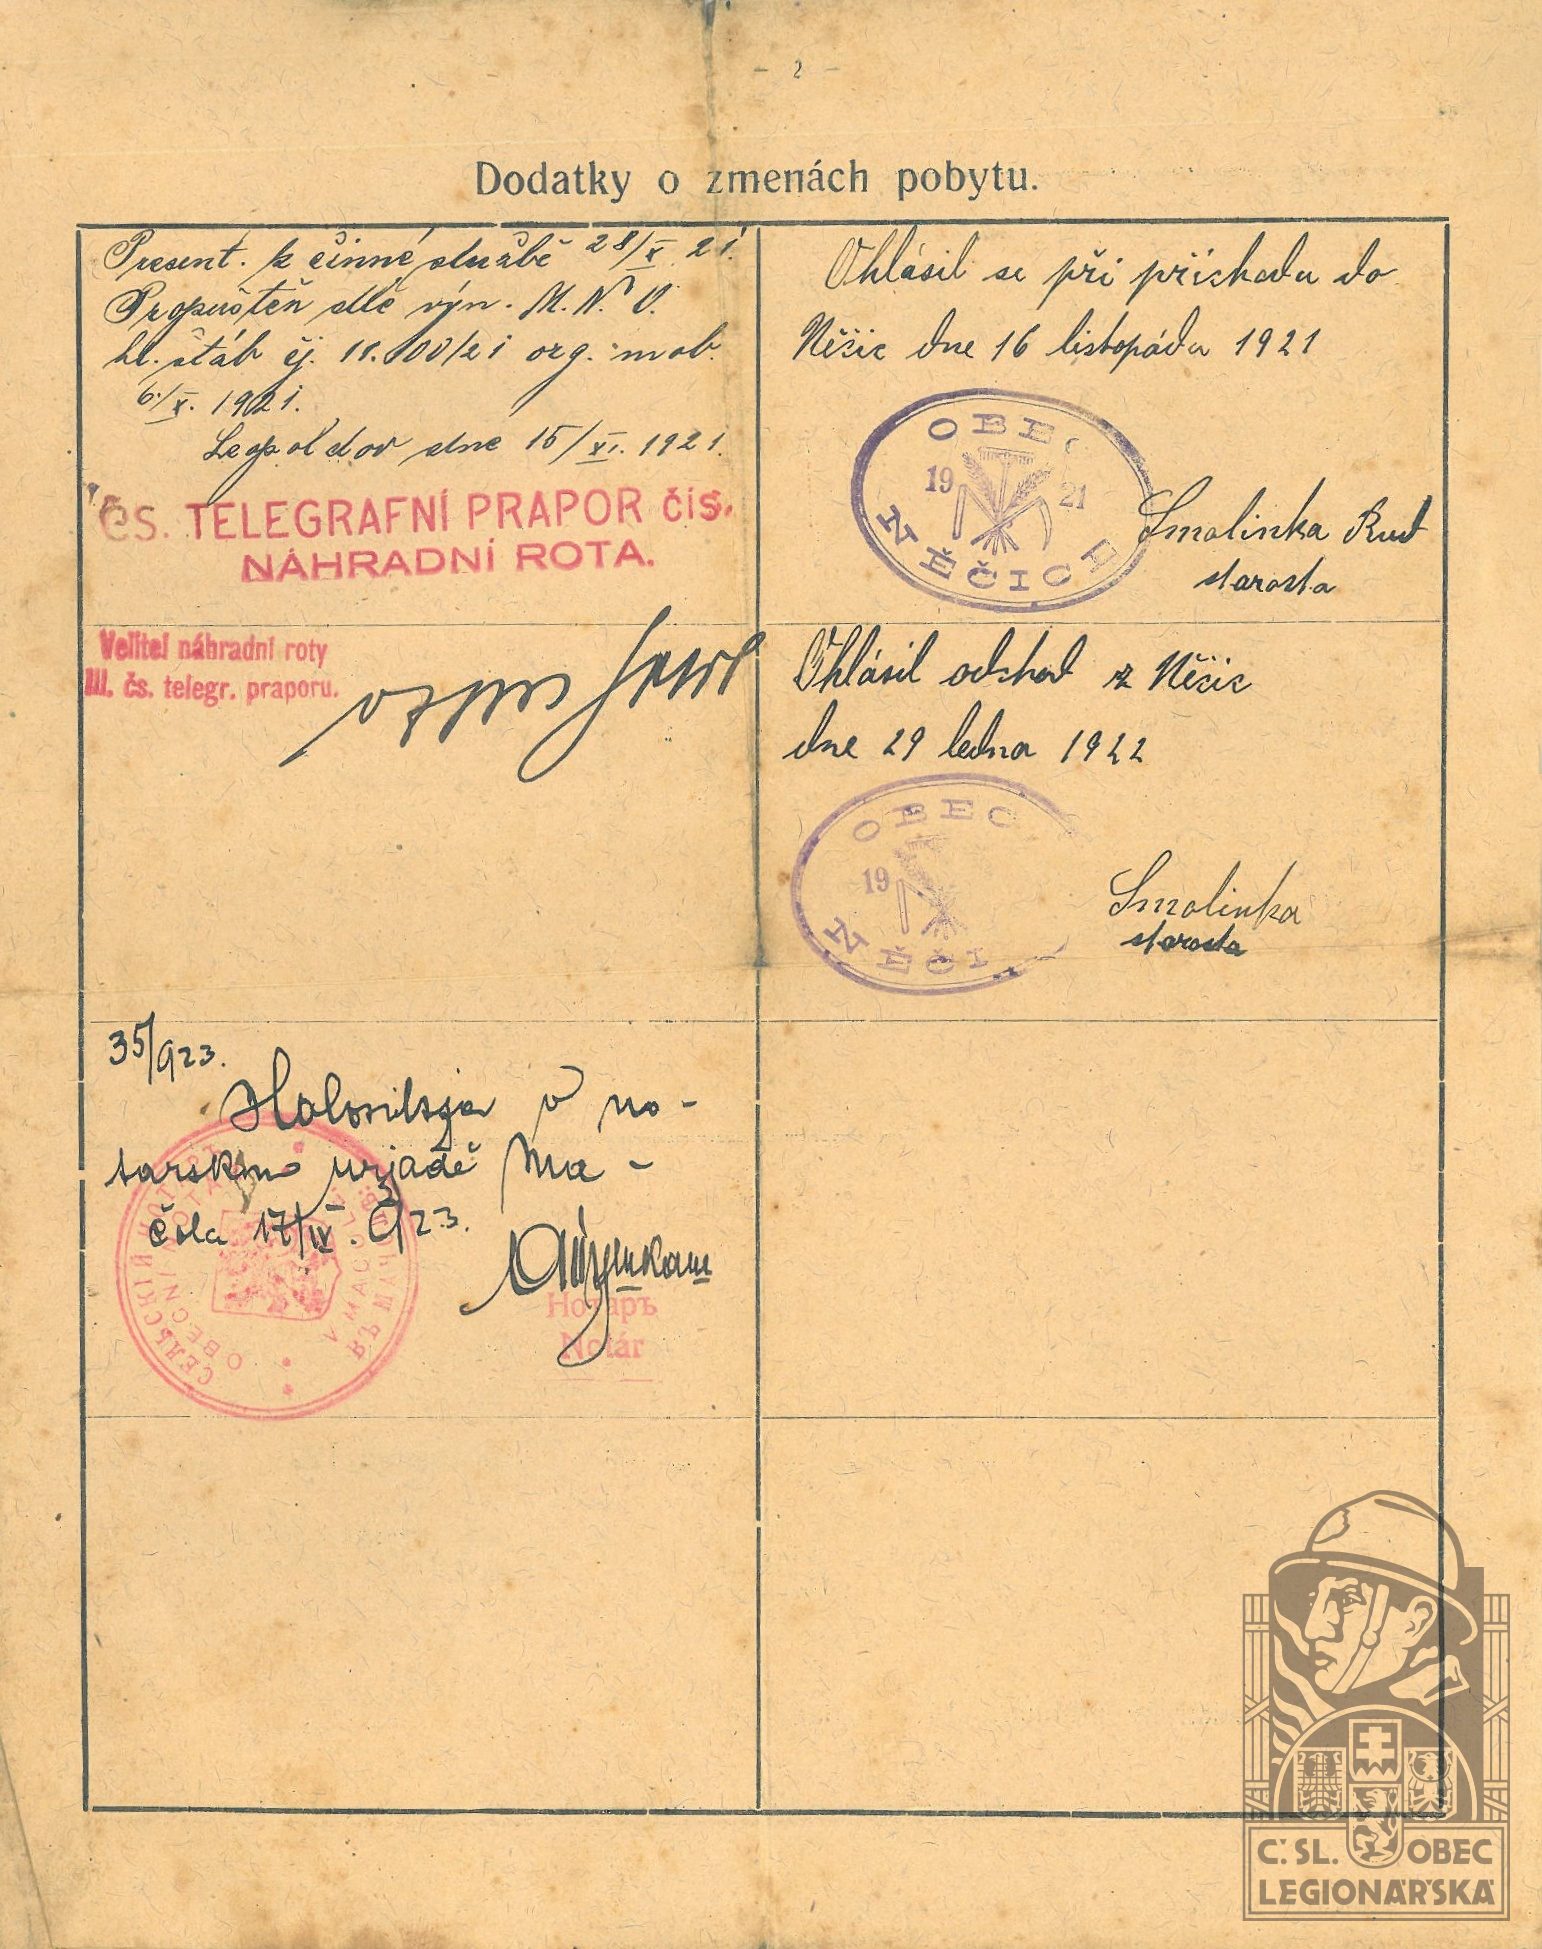 - 2 -
Dodatky o zmenách pobytu.
Present. k činné službě 28/X. 21.
Propuštěn dle výn. M. N. O.
hl. štáb čj. 11.100/21 org. mob.
6./X. 1921.
Leopoldov dne 15/XI. 1921.
ČS. TELEGRAFNÍ PRAPOR čís.
NÁHRADNÍ ROTA.
Velitel náhradní roty
III. čs. telegr. praporu.
35/923.
v no-
tarskom urjadě Ma-
čola 17/IV. 923.
СЕЛЬСКІЙ НОТАР
OBECNÍ NOTÁ
Нотаръ
Notár
Ohlásil se při příchodu do
Něčic dne 16 listopádu 1921
OBEC
19 21
NĚČICE
Smolinka Rud
starosta
Ohlásil odchod z Něčic
dne 29 ledna 1922
OBEC
19
NĚČI
Smolinka
starosta
Č. SL. OBEC
LEGIONÁŘSKÁ